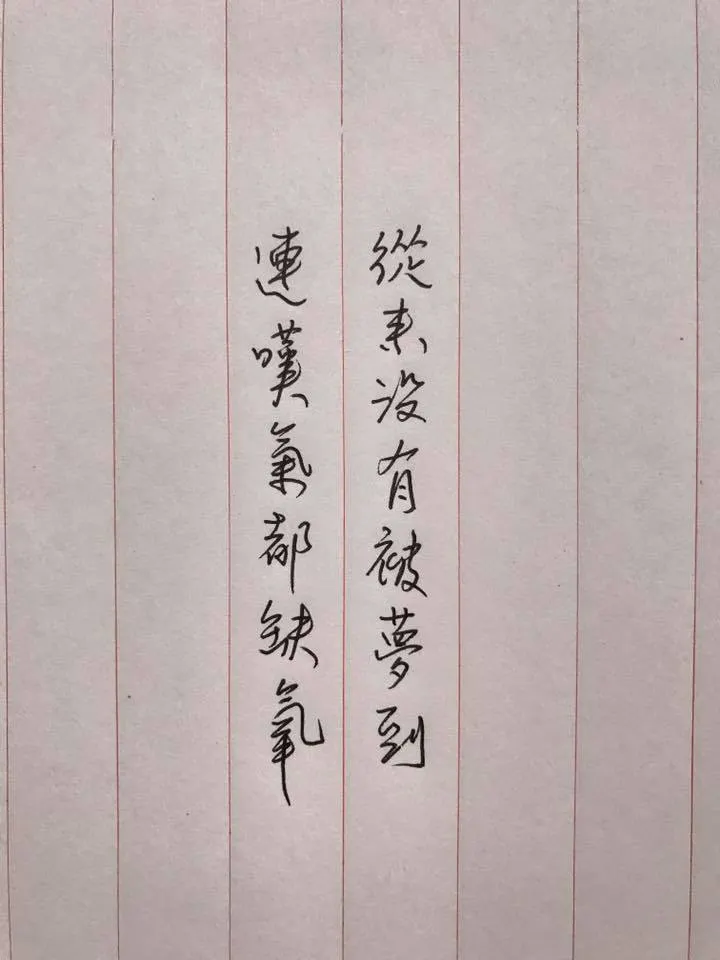 從來没有被夢到
連嘆氣都缺氧